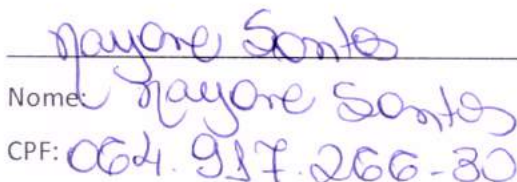 Nayane Santos
Nome: Nayane Santos
CPF: 064.917.266-30